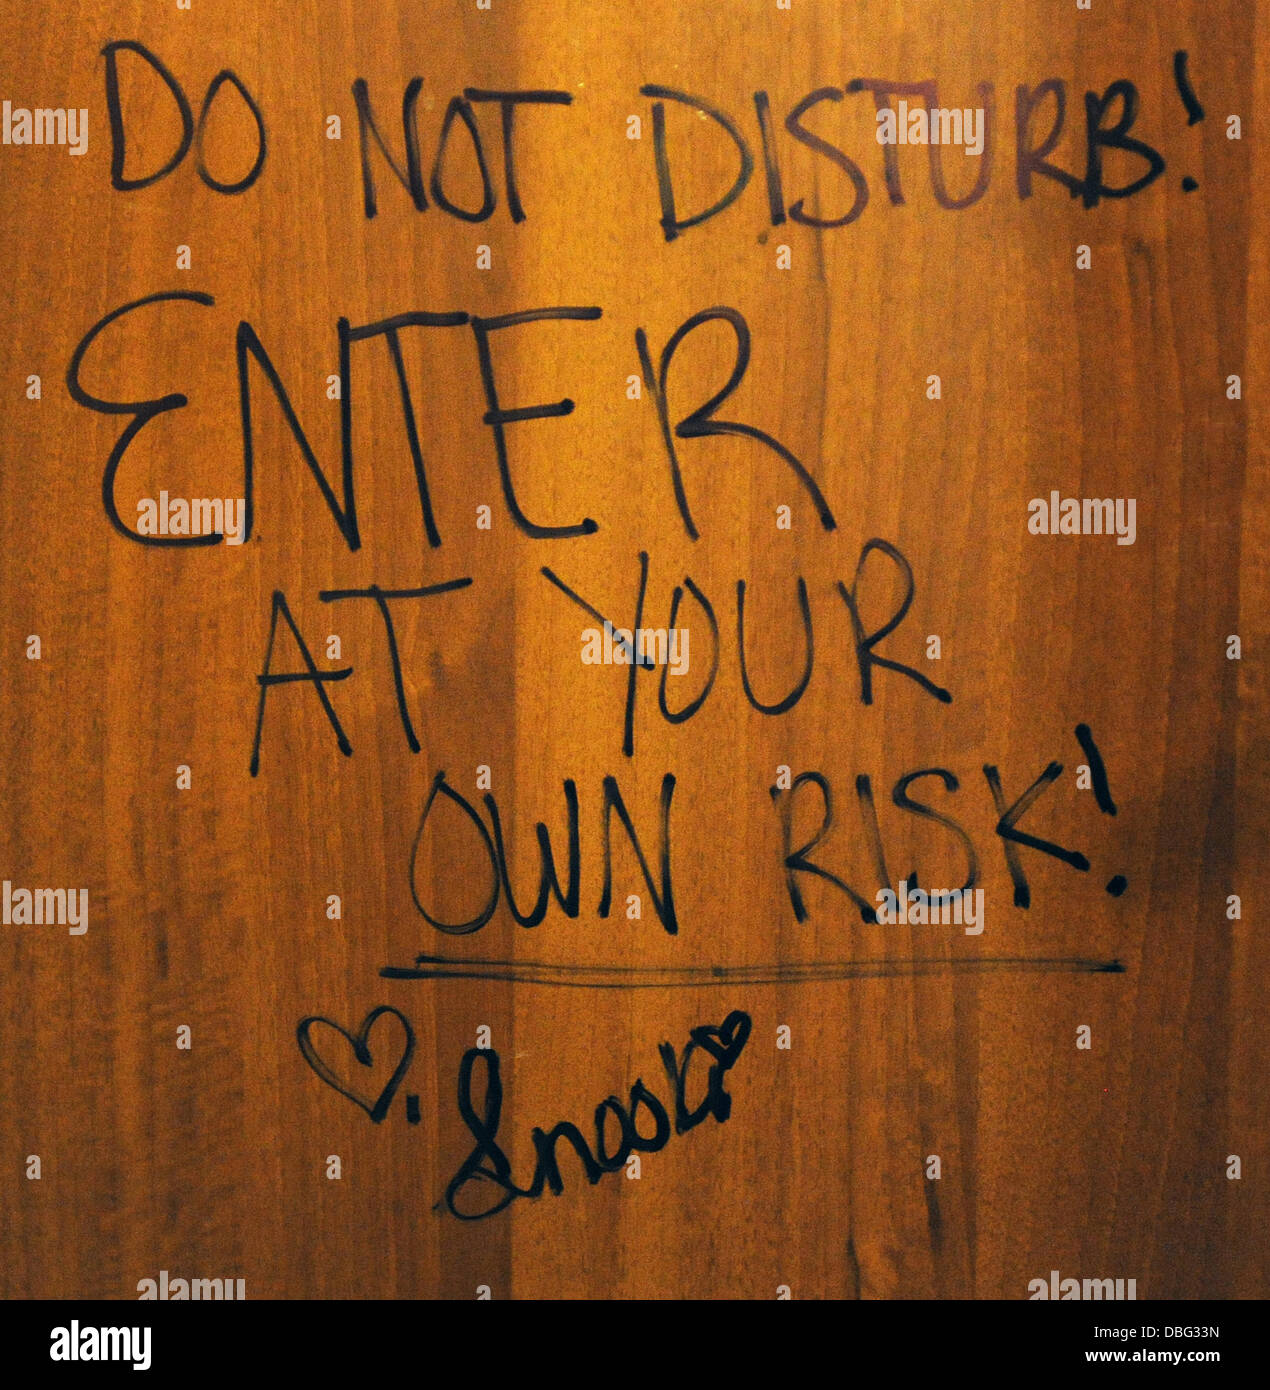 DO NOT DISTURB!
ENTER
AT YOUR
OWN RISK!
♡. Snooki
alamy
alamy
Image ID: DBG33N
www.alamy.com